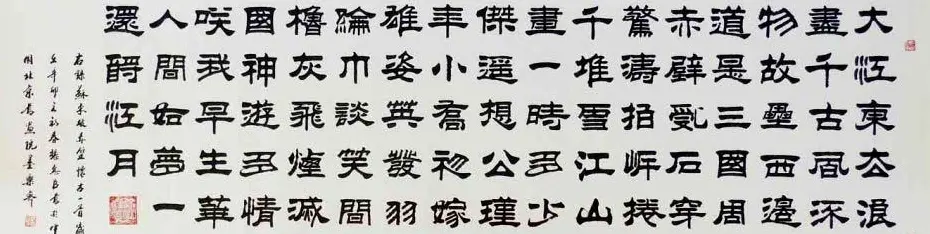 大江東去浪
盡千古風流
物故壘西邊
道是三國周
赤壁亂石穿
驚濤拍岸捲
千堆雪江山
畫一時多少
傑遙想公瑾
年小喬初嫁
雄姿英發羽
綸巾談笑間
櫓灰飛煙滅
國神遊多情
咲我早生華
人間如夢一
還酹江月
右録蘇東坡赤壁懷古一首歲
辛卯之初春書於中
北京書畫院墨樂齋